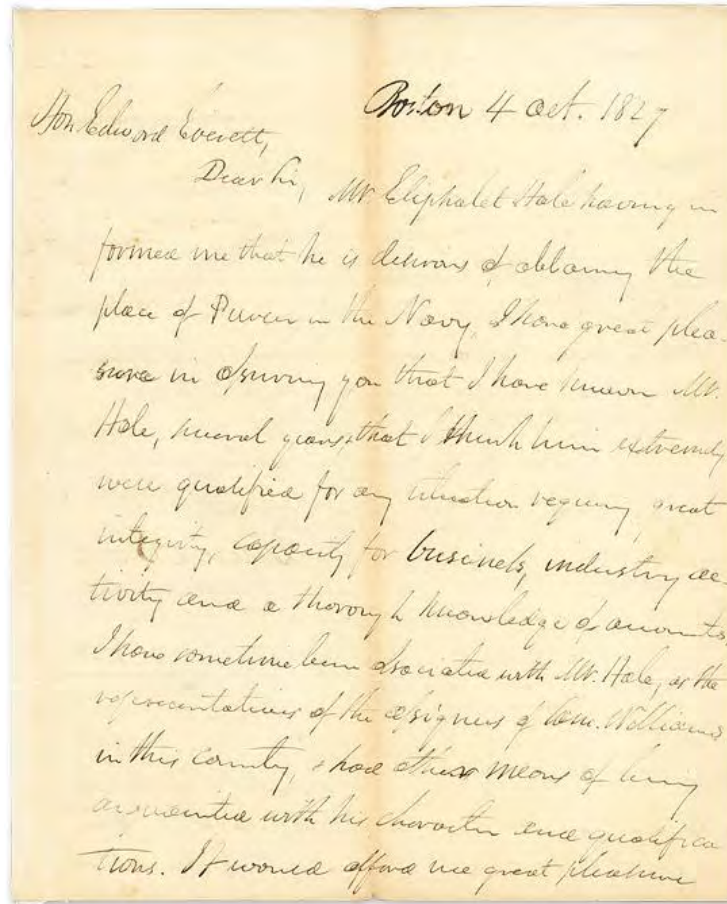 Boston 4 Oct. 1827
Hon Edward Everett,
Dear Sir, Mr. Eliphalet Hale having in
formed me that he is desirous of obtaining the
place of Purser in the Navy, I have great plea-
sure in assuring you that I have known Mr.
Hale, several years, that I think him extremely
well qualified for any situation requiring great
integrity, capacity for business, industry ac-
tivity and a thorough knowledge of accounts.
I have sometime been associated with Mr. Hale, as the
representatives of the assignees of Williams
in this country, & had other means of being
acquainted with his character and qualifica
tions. It would afford me great pleasure